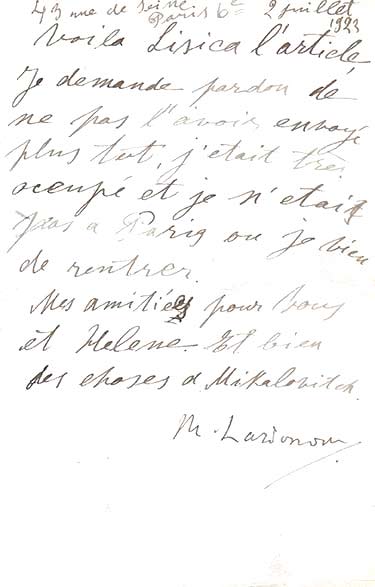 43 rue de Seine.
Paris 6e 2 juillet
1923
Voila Lisica l'article,
Je demande pardon de
ne pas l'avoir envoyé
plus tut, j'etait tres
ocupé et je n'etait
pas a Paris ou je vien
de rentrer.
Mes amitiées pour Vous
et Helene. Et bien
des choses a Mikalovitch.
M. Larionow